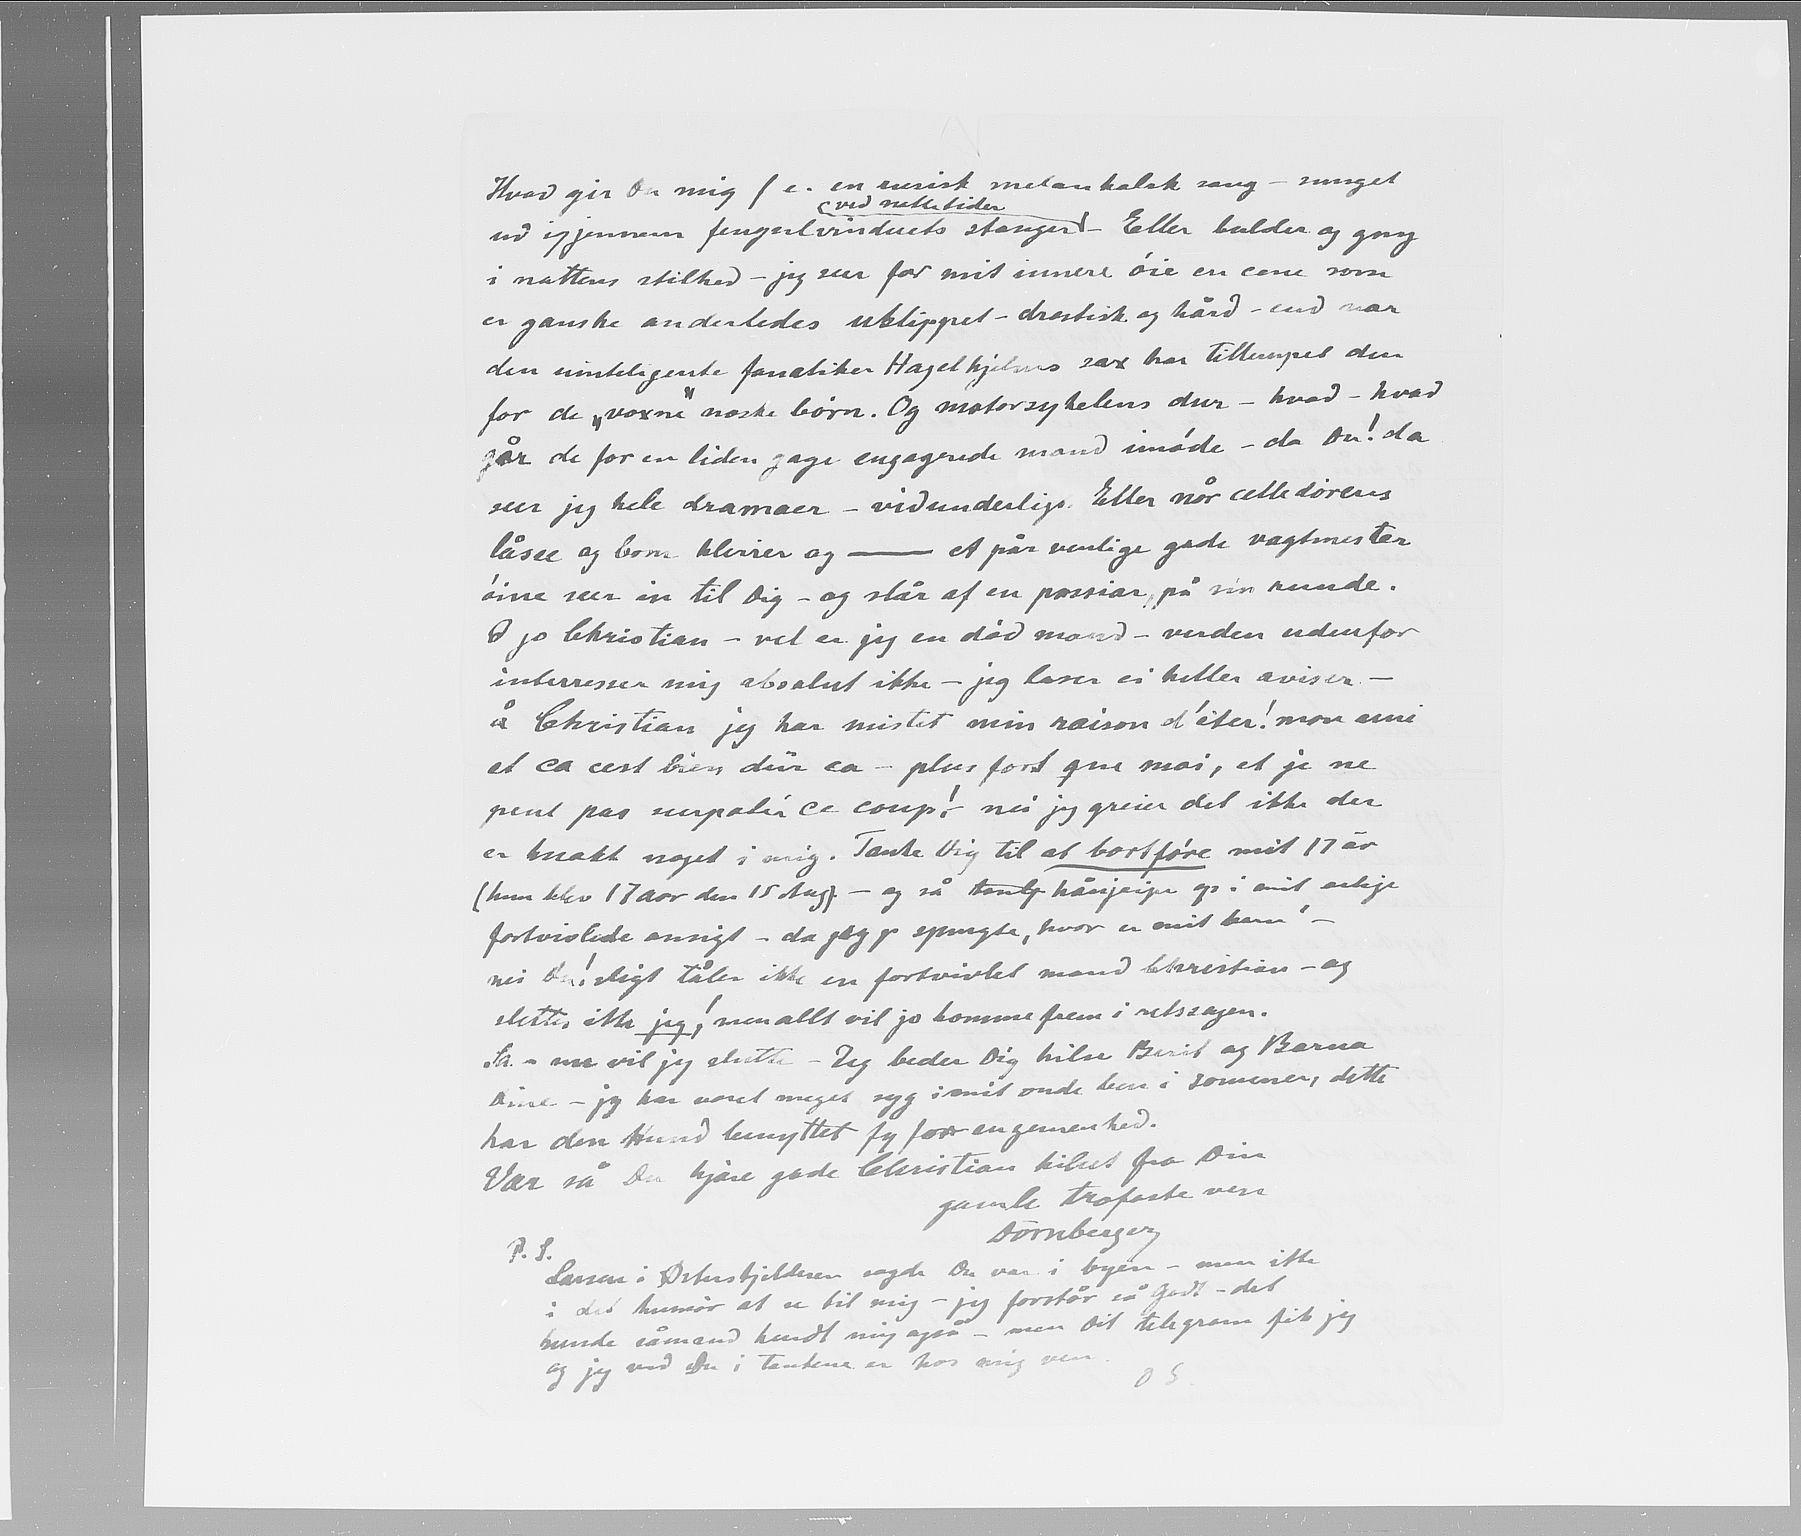 Hvad gir Du mig f e. en russisk melankolsk sang – sunget
ved nattetider
ud igjennem fengselvinduets stenger! – Eller bulder og gny
i nattens stilhed – jeg seer for mit innere öie en cene som
er ganske anderledes uklippet – drastisk og hård – end nar
den uinteligente fanatiker Hagelhjelms sax har tillempet den
for de „voxne" norske börn. Og motorsykelens dur – hvad – hvad
går de for en liden gage engagerede mand imöde – da Du! da
seer jeg hele dramaer – vidunderlige. Eller når celledörens
låsee og bom klirrer og —— et pår venlige gode vagtmester
öine seer in til Dig – og slår af en passiar, på sin runde.
jo Christian – vel er jeg en död mand – verden udenfor
interresser mig absolut ikke – jeg læser ei heller aviser –
å Christian jeg har mistet min raison d'éter! mon ami
et ca cest bien dür ca – plus fort que moi, et je ne
peut pas ce coup! – nei jeg greier det ikke der
er knakt noget i mig. Tænk Dig til at bortføre mit 17 år
(hun blev 17 aar den 15 Aug). – og så op i mit ærlige
fortvivlede ansigt – da jeg spurgte, hvor er mit barn! –
nei Du! sligt tåler ikke en fortvivlet mand Christian – og
slettes ikke jeg! men allt vil jo komme frem i retssagen.
Så – nu vil jeg slutte – Jeg beder Dig hilse Berit og Barna
Dine – jeg har været meget syg i mit onde ben i sommer, dette
har den Hund benyttet fy for en gemenhed.
Vær så Du kjære gode Christian hilset fra Din
gamle trofaste ven
Dörnberger
P. S.
Larsen i Østerskjelderen sagde Du var i byen – men ikke
i det humör at se til mig – jeg forstår så godt – det
kunde såmænd hendt mig også – men Dit telegram fik jeg
og jeg ved Du i tankene er hos mig ven.
D S.